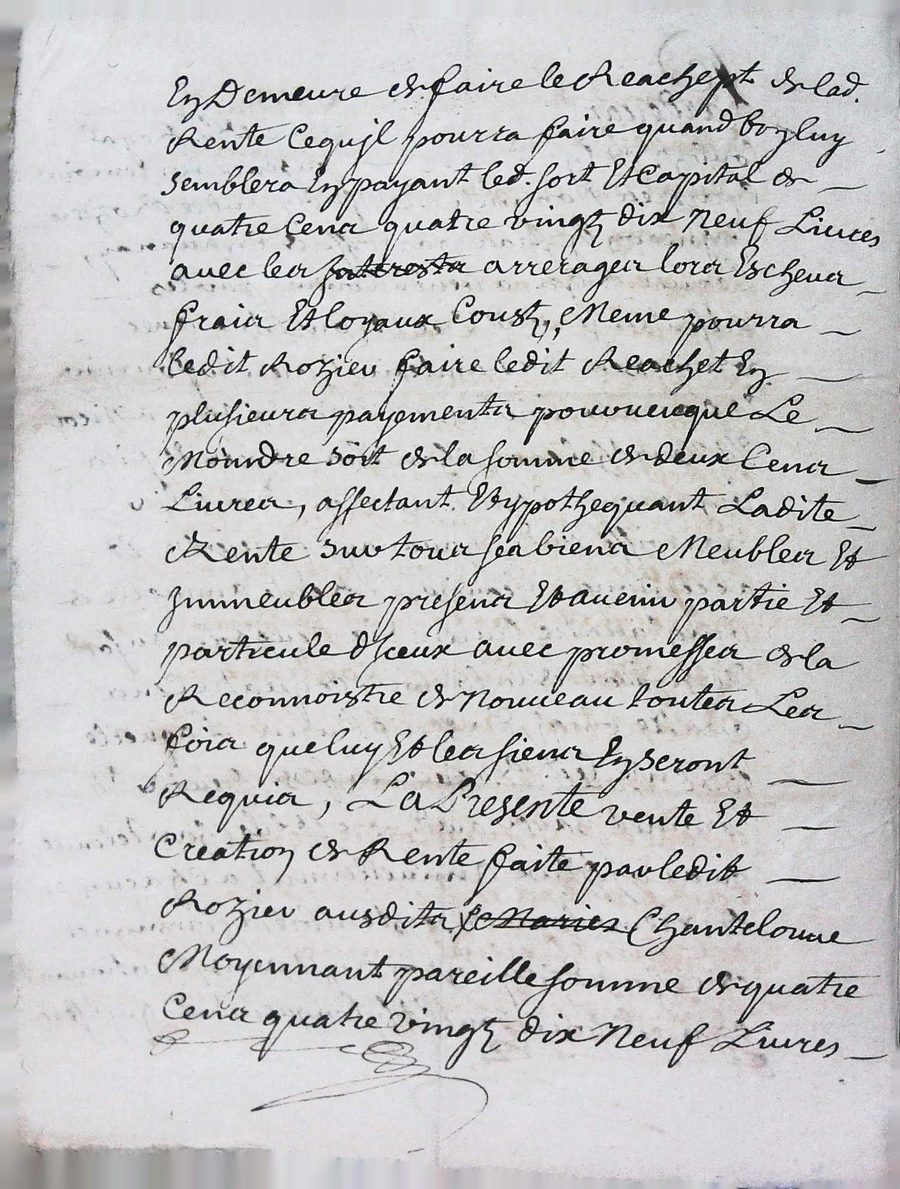 En Demeure de faire le Reachept de lad.
Rente Cequil pourra faire quand bon luy
semblera En payant led. sort Et Capital de
quatre Cens quatre vingt dix Neuf Livres
avec les Interests arrerages lors Escheus
frais Et loyaux Coust, Meme pourra
ledit Rozier faire ledit Reachet En
plusieurs payements pourveuque Le
Moindre soit de la somme de deux Cens
Livres, affectant Hypothequant Ladite
Rente sur tous ses biens Meubles Et
Immeubles presens Et avenir partie Et
particule d'Iceux avec promesses de la
Reconnoistre de Nouveau toutes Les
fois que luy Et les siens En seront
Requis, La Presente vente Et
Creation de Rente faite par ledit
Rozier ausdits Maries Chantelouve
Moyennant pareille somme de quatre
Cens quatre vingt dix Neuf Livres